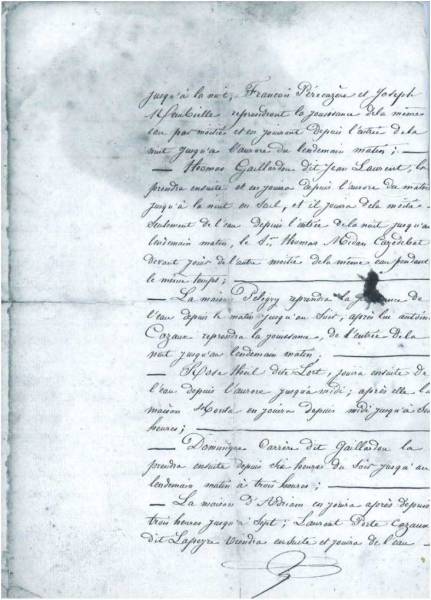 jusqu'à la nuit, François Pérécazère et Joseph
reprendront la jouissance de la même
eau par moitié et en jouiront depuis l'entrée de la
nuit jusqu'à l'aurore du lendemain matin ; —
— Thomas Gaillardou dit Jean Laurent, la
prendra ensuite et en jouira depuis l'aurore du matin
jusqu'à la nuit ou Seul, et il jouira de la moitié
seulement de l'eau depuis l'entrée de la nuit jusqu'au
lendemain matin, le Sr. Thomas Cazédebat
devant jouir de l'autre moitié de la même eau pendant
le même temps ; —
— La maison Péligry reprendra la jouissance de
l'eau depuis le matin jusqu'au Soir, après lui antoine
Cazaux reprendra la jouissance, de l'entrée de la
nuit jusqu'au lendemain matin. —
— Rose dite Lort, jouira ensuite de
l'eau depuis l'aurore jusqu'à midi ; après elle la
maison en jouira depuis midi jusqu'à Six
heures ; —
— Dominique Carrère dit Gaillardou la
prendra ensuite depuis Six heures du Soir jusqu'au
lendemain matin à trois heures ; —
— La maison D'Adriam en jouira après depuis
trois heures jusqu'à Sept ; Laurent Porte Cazaux
dit Lapeyre viendra ensuite et jouira de l'eau —